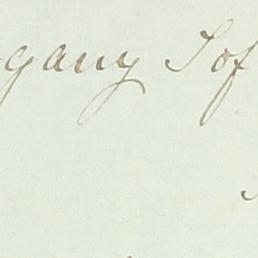 gany Sof